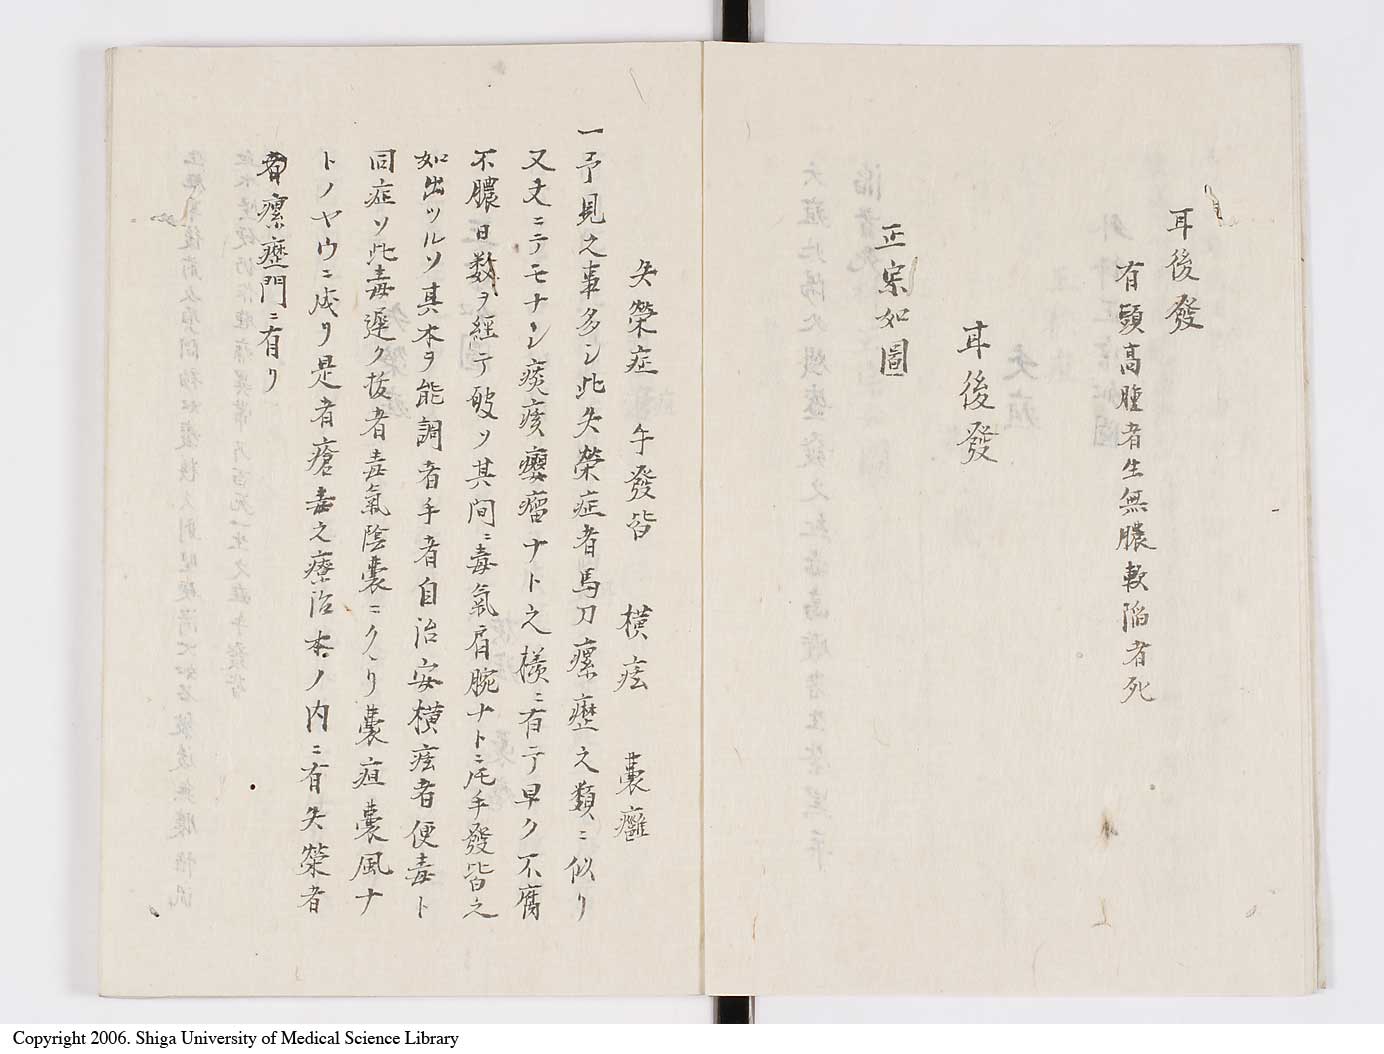 耳後發
有頭高腫者生無膿軟陥者死
耳後發
正宗如圖
失榮症 手發背 横痃 囊癰
一予見之事多シ此失榮症者馬刀瘰癧之類ニ似リ
又丈ニテモナシ痰痎癭瘤ナト之様ニ有テ早ク不腐
不膿日数ヲ經テ破ソ其间ニ毒氣肩腕ナトニ手發背之
如出ツルソ其本ヲ能調者手者自治安横痃者便毒ト
同症ソ此毒遲ク抜者毒氣陰囊ニクヽリ囊疽囊風ナ
トノヤウニ成リ是者瘡毒之療治本ノ内ニ有失榮者
瘰癧門ニ有リ
Copyright 2006. Shiga University of Medical Science Library